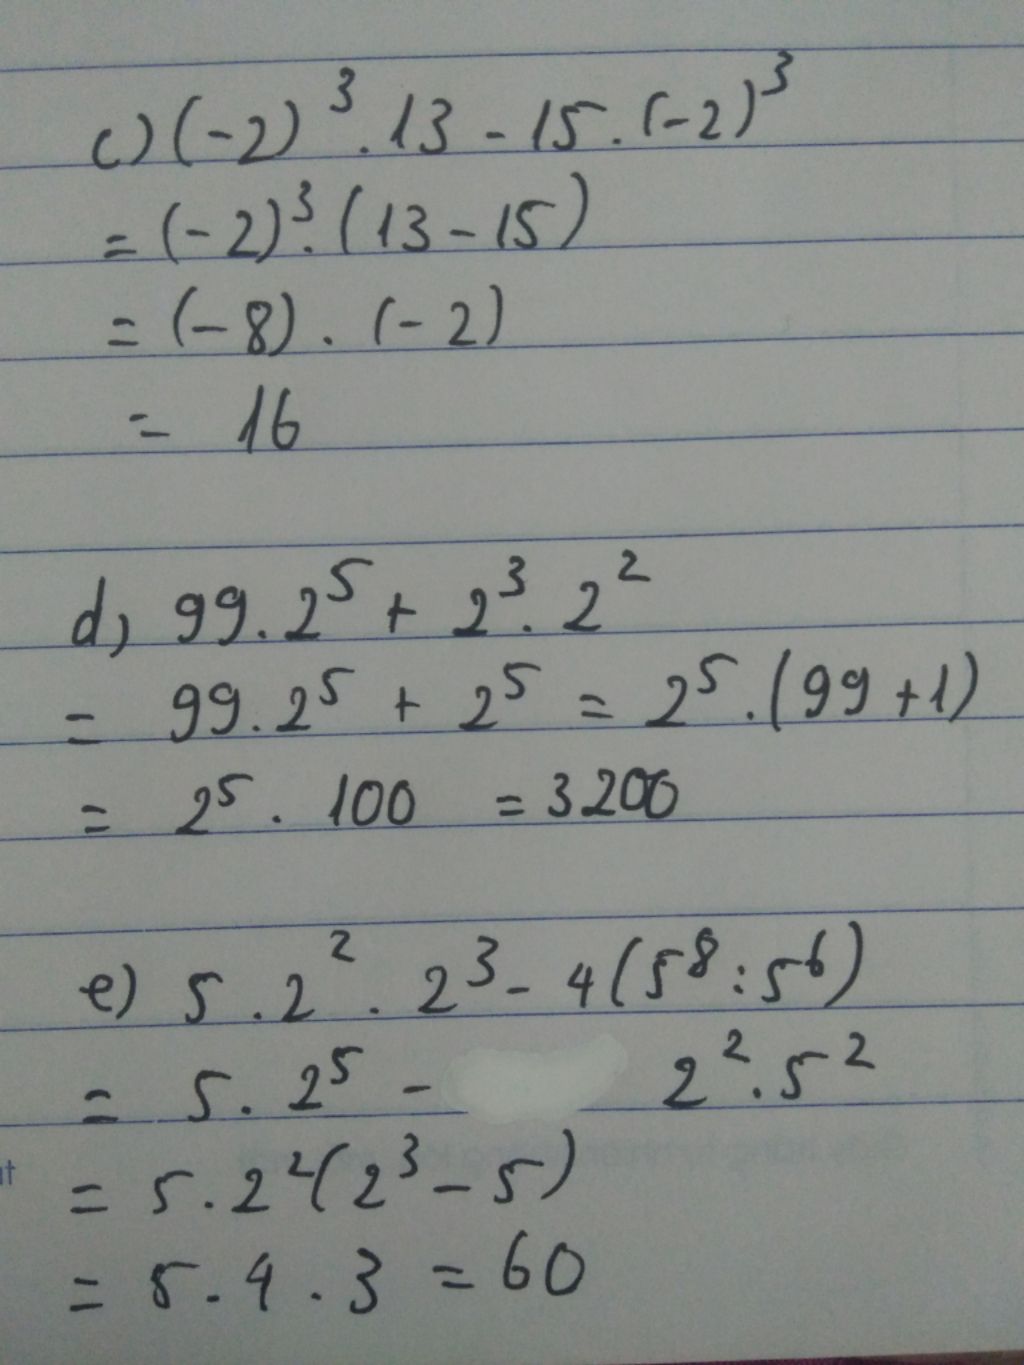 c) (-2)³ . 13 - 15 . (-2)³
= (-2)³ . (13 - 15)
= (-8) . (-2)
= 16
d, 99 . 2⁵ + 2³ . 2²
= 99 . 2⁵ + 2⁵ = 2⁵ . (99 + 1)
= 2⁵ . 100 = 3200
e) 5 . 2² . 2³ - 4(5⁸ : 5⁶)
= 5 . 2⁵ - 2² . 5²
= 5 . 2²(2³ - 5)
= 5 . 4 . 3 = 60